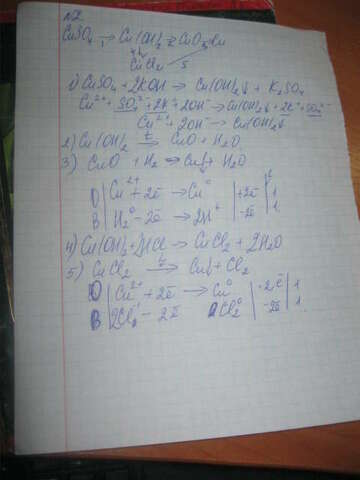 №2
CuSO₄ →₁ Cu(OH)₂ →₂ CuO →₃ Cu
4↓ CuCl₂ 5
1) CuSO₄ + 2KOH → Cu(OH)₂↓ + K₂SO₄
Cu²⁺ + SO₄²⁻ + 2K⁺ + 2OH⁻ → Cu(OH)₂↓ + 2K⁺ + SO₄²⁻
Cu²⁺ + 2OH⁻ → Cu(OH)₂↓
2) Cu(OH)₂ →t CuO + H₂O
3) CuO + H₂ → Cu↓ + H₂O
О | Cu²⁺ + 2ē → Cu⁰ | +2ē | 1
В | H₂⁰ - 2ē → 2H⁺ | -2ē | 1
4) Cu(OH)₂ + 2HCl → CuCl₂ + 2H₂O
5) CuCl₂ → Cu↓ + Cl₂
О | Cu²⁺ + 2ē → Cu⁰ | +2ē | 1
В | 2Cl⁻¹ - 2ē Cl₂⁰ | -2ē | 1